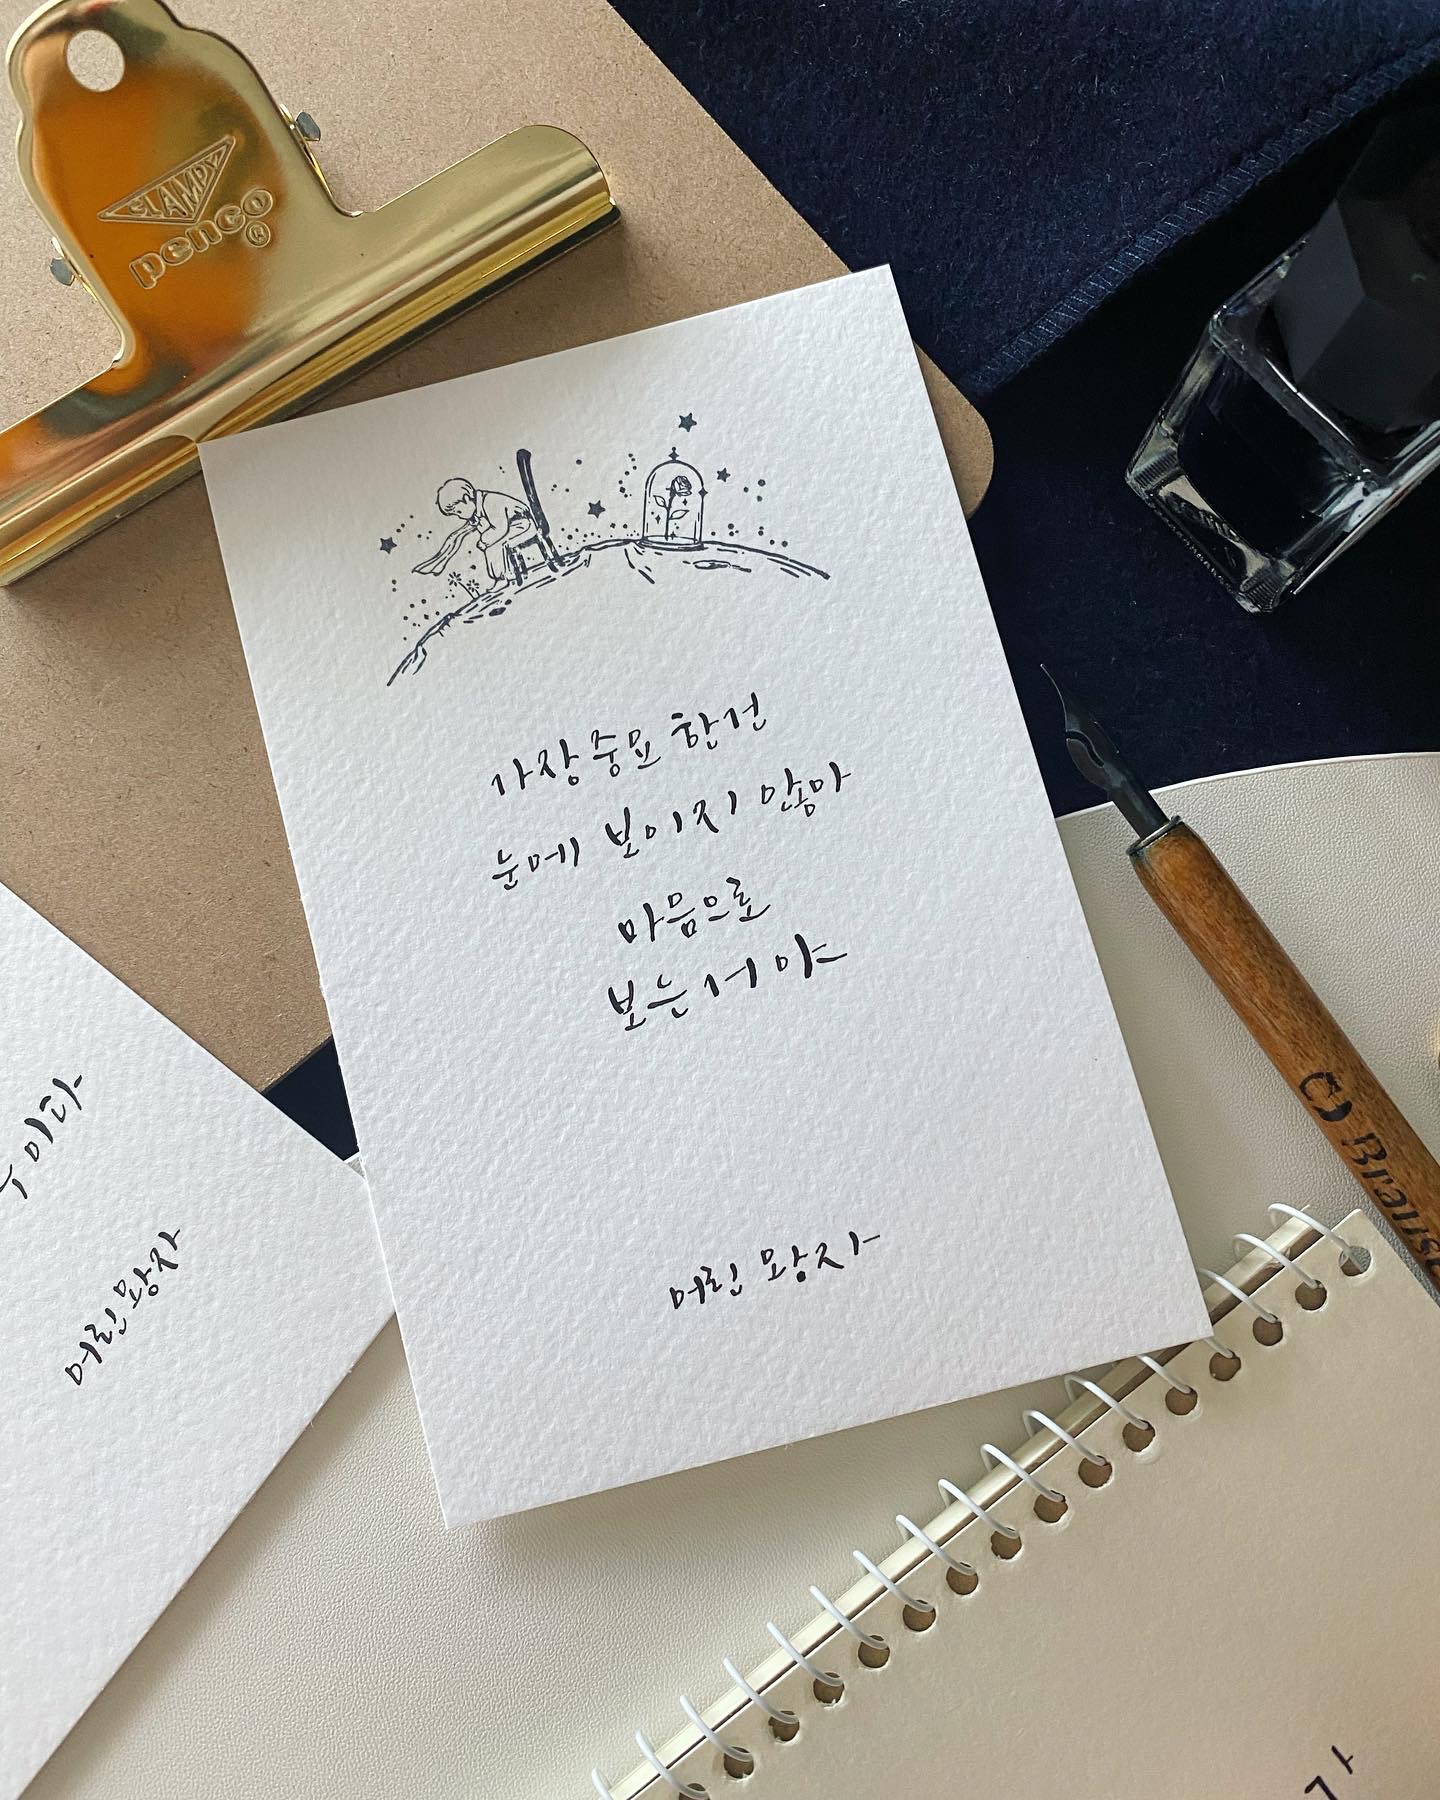 SLAMPY
penco®
가장 중요 한건
눈에 보이지 않아
마음으로
보는거야
어린 왕자
어린 왕자
Brause
가